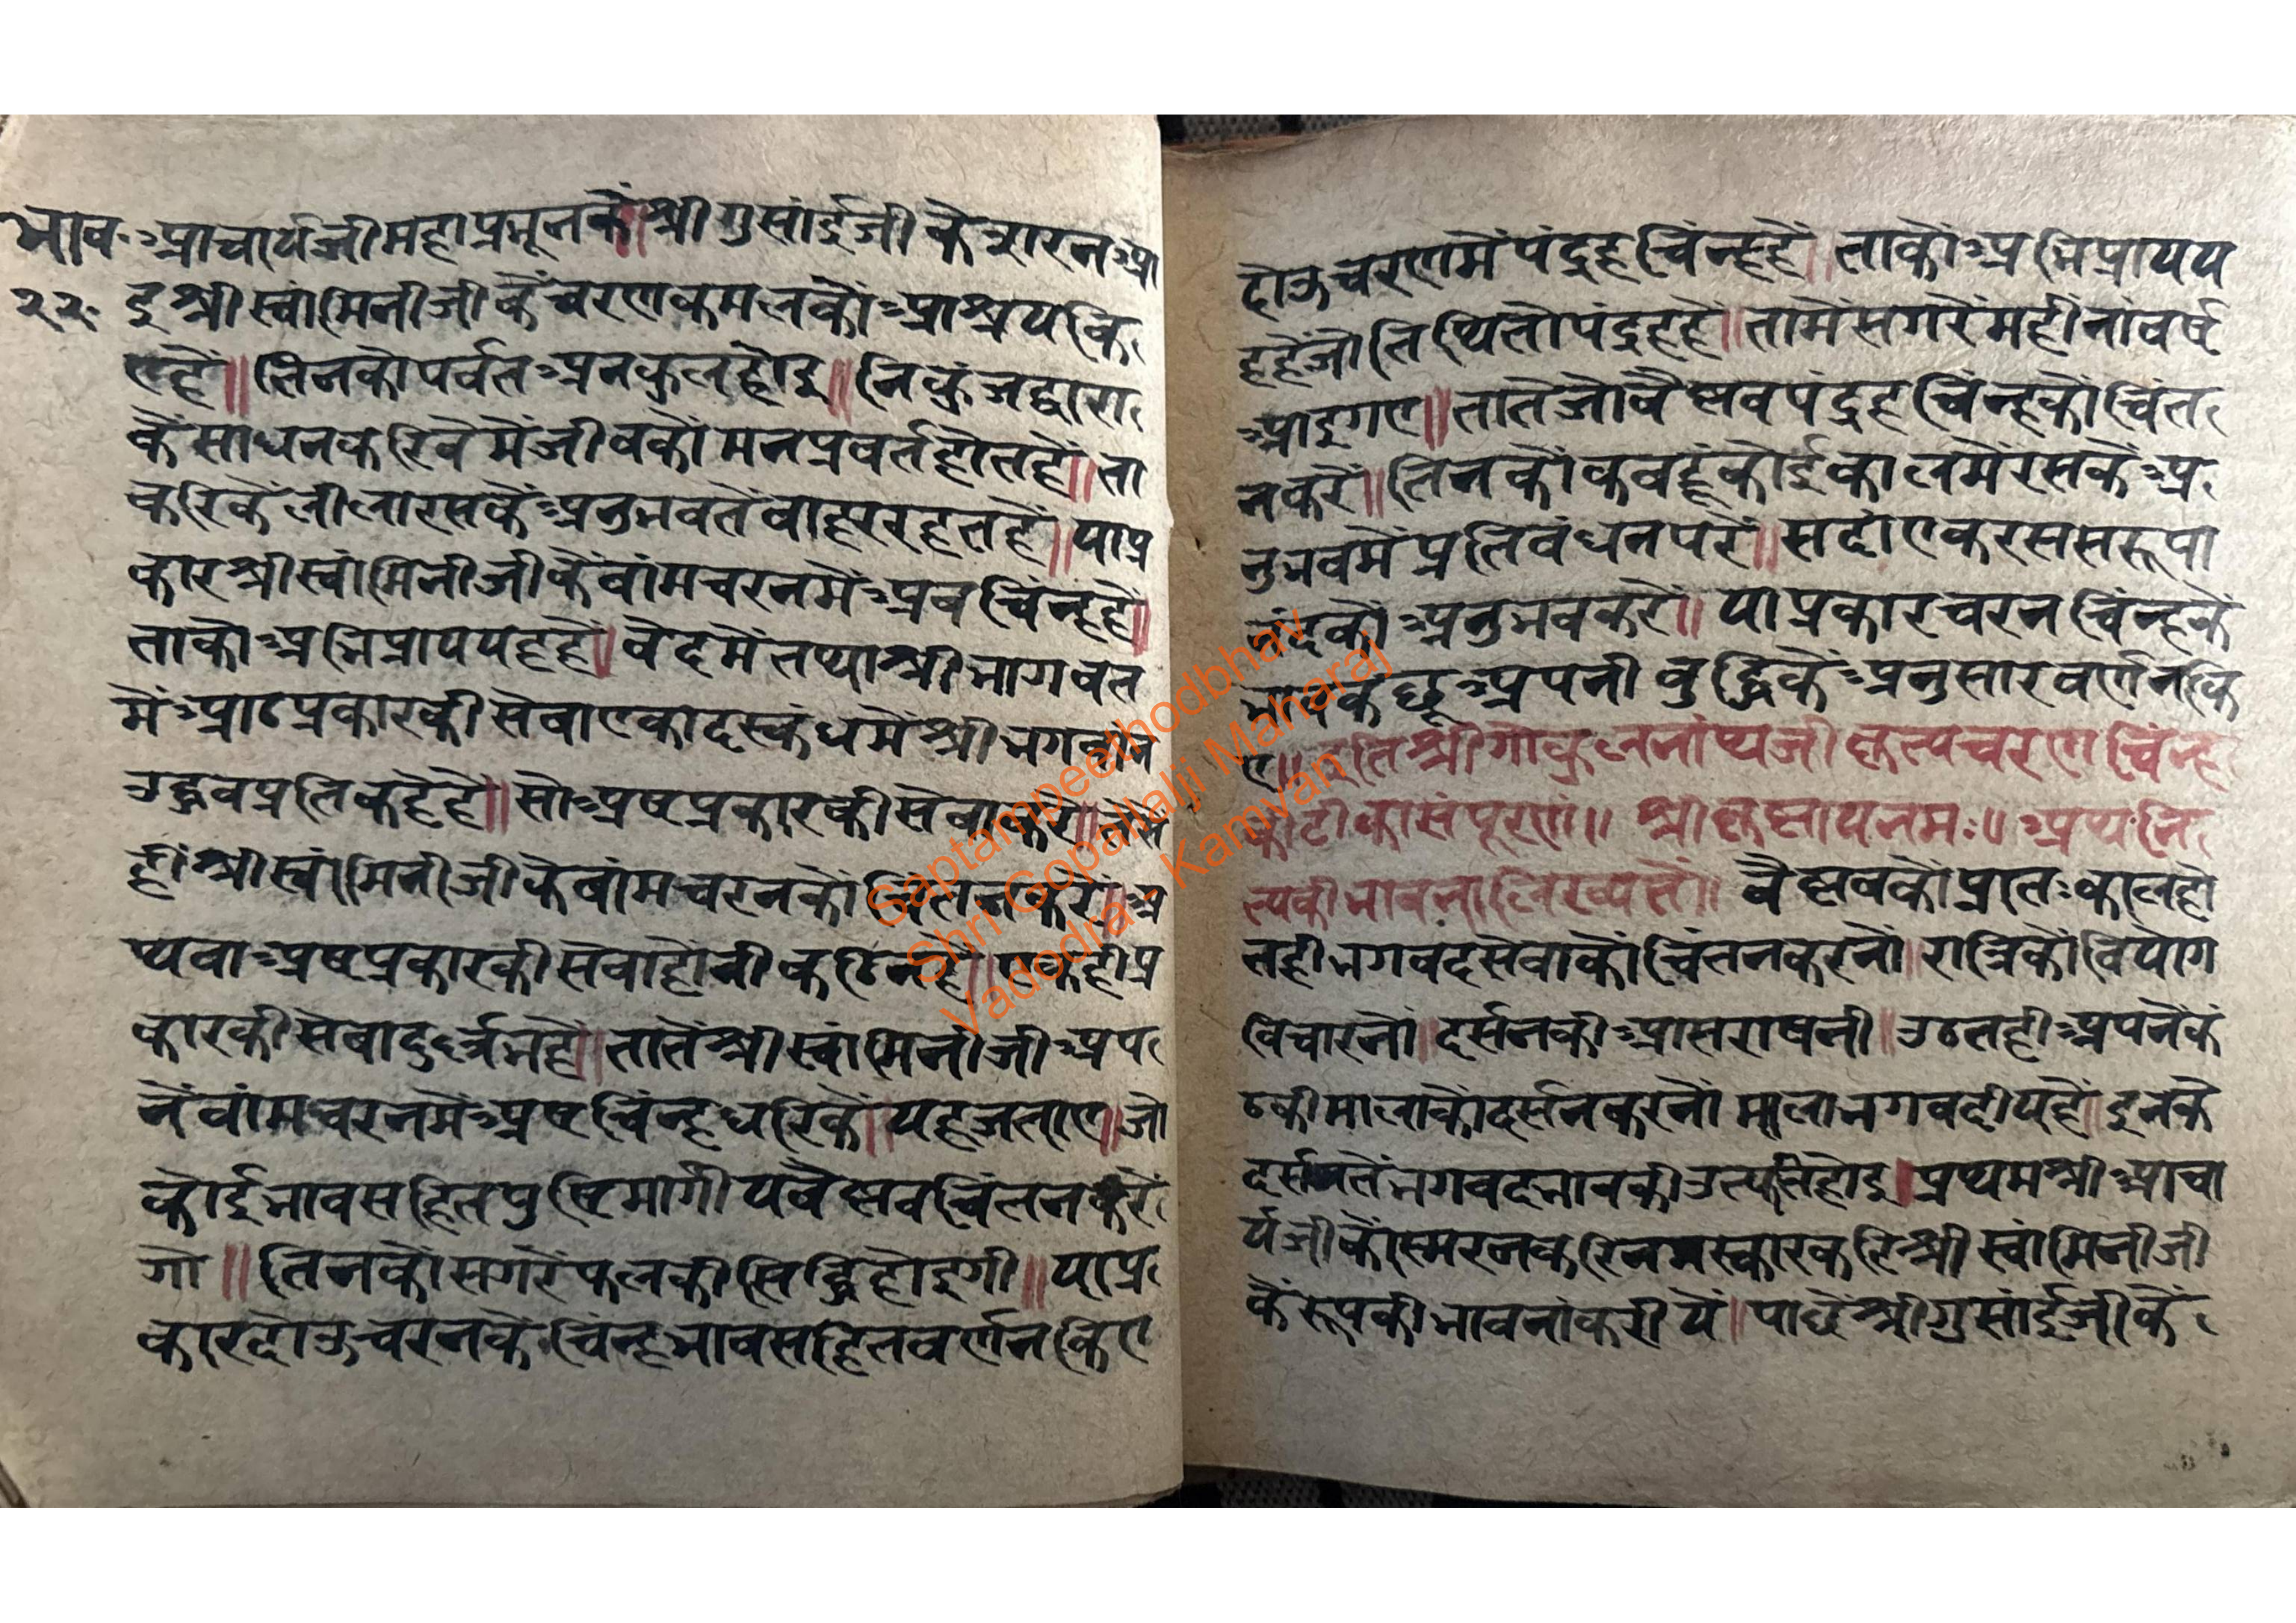 भाव. आचार्यजीमहाप्रभूनकें॥श्रीगुसांईजीकेसरनआ
२२. इश्रीस्वांमिनीजीकेंचरणकमलकौंआश्रयकि
एहैं॥तिनकोपर्वतअनकुलहोइ॥निकुंजद्वारा
कैंसाधनकरिवेमेंजीवकौंमनप्रवर्तहोतहें॥ता
करिकेंलीलारसकेंअनुभवतेंवाह्यरहतहें॥याप्र
कारश्रीस्वांमिनीजीकेंवांमचरनमेंअवचिंन्हहें॥
ताकोअभिप्राययहहै॥वेदमेंतथाश्रीभागवत
मेंआठप्रकारकीसेवाएकादस्कंधमेंश्रीभगवांन
उद्धवप्रतिकहेहै॥सोअष्टप्रकारकीसेवाकरे॥तेसे
हींश्रीस्वांमिनीजीकेवांमचरनकौंचिंतनकरें॥अ
थवाअष्टप्रकारकीसेवाहोंनीकठिनहै॥एकहीप्र
कारकीसेवादुर्ल्लभहै॥तातेंश्रीस्वांमिनीजीअप
नेंवांमचरनमेंअष्टचिंन्हधरिकें॥यहजताए॥जो
कोईभावसहितपुष्टिमार्गीयवैष्णवचिंतनकरें
गो॥तिनकौंसगरेंफलकीसिद्धिहोइगी॥याप्र
कारदोऊचरनकेंचिंन्हभावसहितवर्णनकिए
दोऊचरणमेंपंद्रहचिंन्हहैं॥ताकौअभिप्रायय
हहैंजोतिथितोपंद्रहहैं॥तामेंसगरेंमहींनांवर्ष
आइगए॥तातेजोवैष्णवपंद्रहचिंन्हकौंचिंत
नकरें॥तिनकौंकबहूंकोईकालमेंरसकेंअ
नुभवमेंप्रतिवंधनपरें॥सदांएकरससरूपा
नंदकौंअनुभवकरें॥याप्रकारचरनचिंन्हकें
भावकछूअपनीवुद्धिकेंअनुसारवर्णनकि
ए॥इतिश्रीगोकुलनांथजीकृत्यचरणचिंन्ह
कीटीकासंपूरणं॥श्रीकृष्णायनमः॥अथनि
त्यकीभावनालिख्यतें॥वैष्णवकौंप्रातःकालहो
तहीभगवदसेवाकौंचिंतनकरनों॥रात्रिकौंवियोग
विचारनों॥दर्सनकीआसराषनी॥उठतहीअपनेंकं
ठकीमालाकौंदर्सनकरनौंमालाभगवदीयहैं॥इनके
दर्सनतेंभगवदभावकीउत्पतिहोइ॥प्रथमश्रीआचा
र्यजीकौंस्मरनकरिनमस्कारकरिश्रीस्वांमिनीजी
कैंरूपकीभावनांकरीयें॥पाछेंश्रीगुसांईजीकें
Saptampeethodbhav
Shri Gopallalji Maharaj
Vadodra - Kamvan